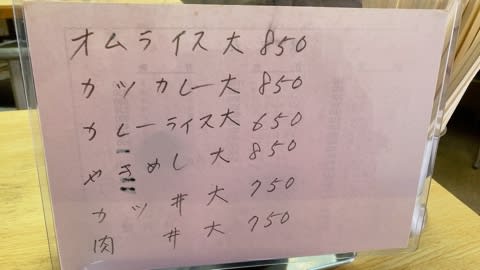 オムライス大 850
カツカレー大 850
カレーライス大 650
やきめし大 850
カツ丼大 750
肉丼大 750